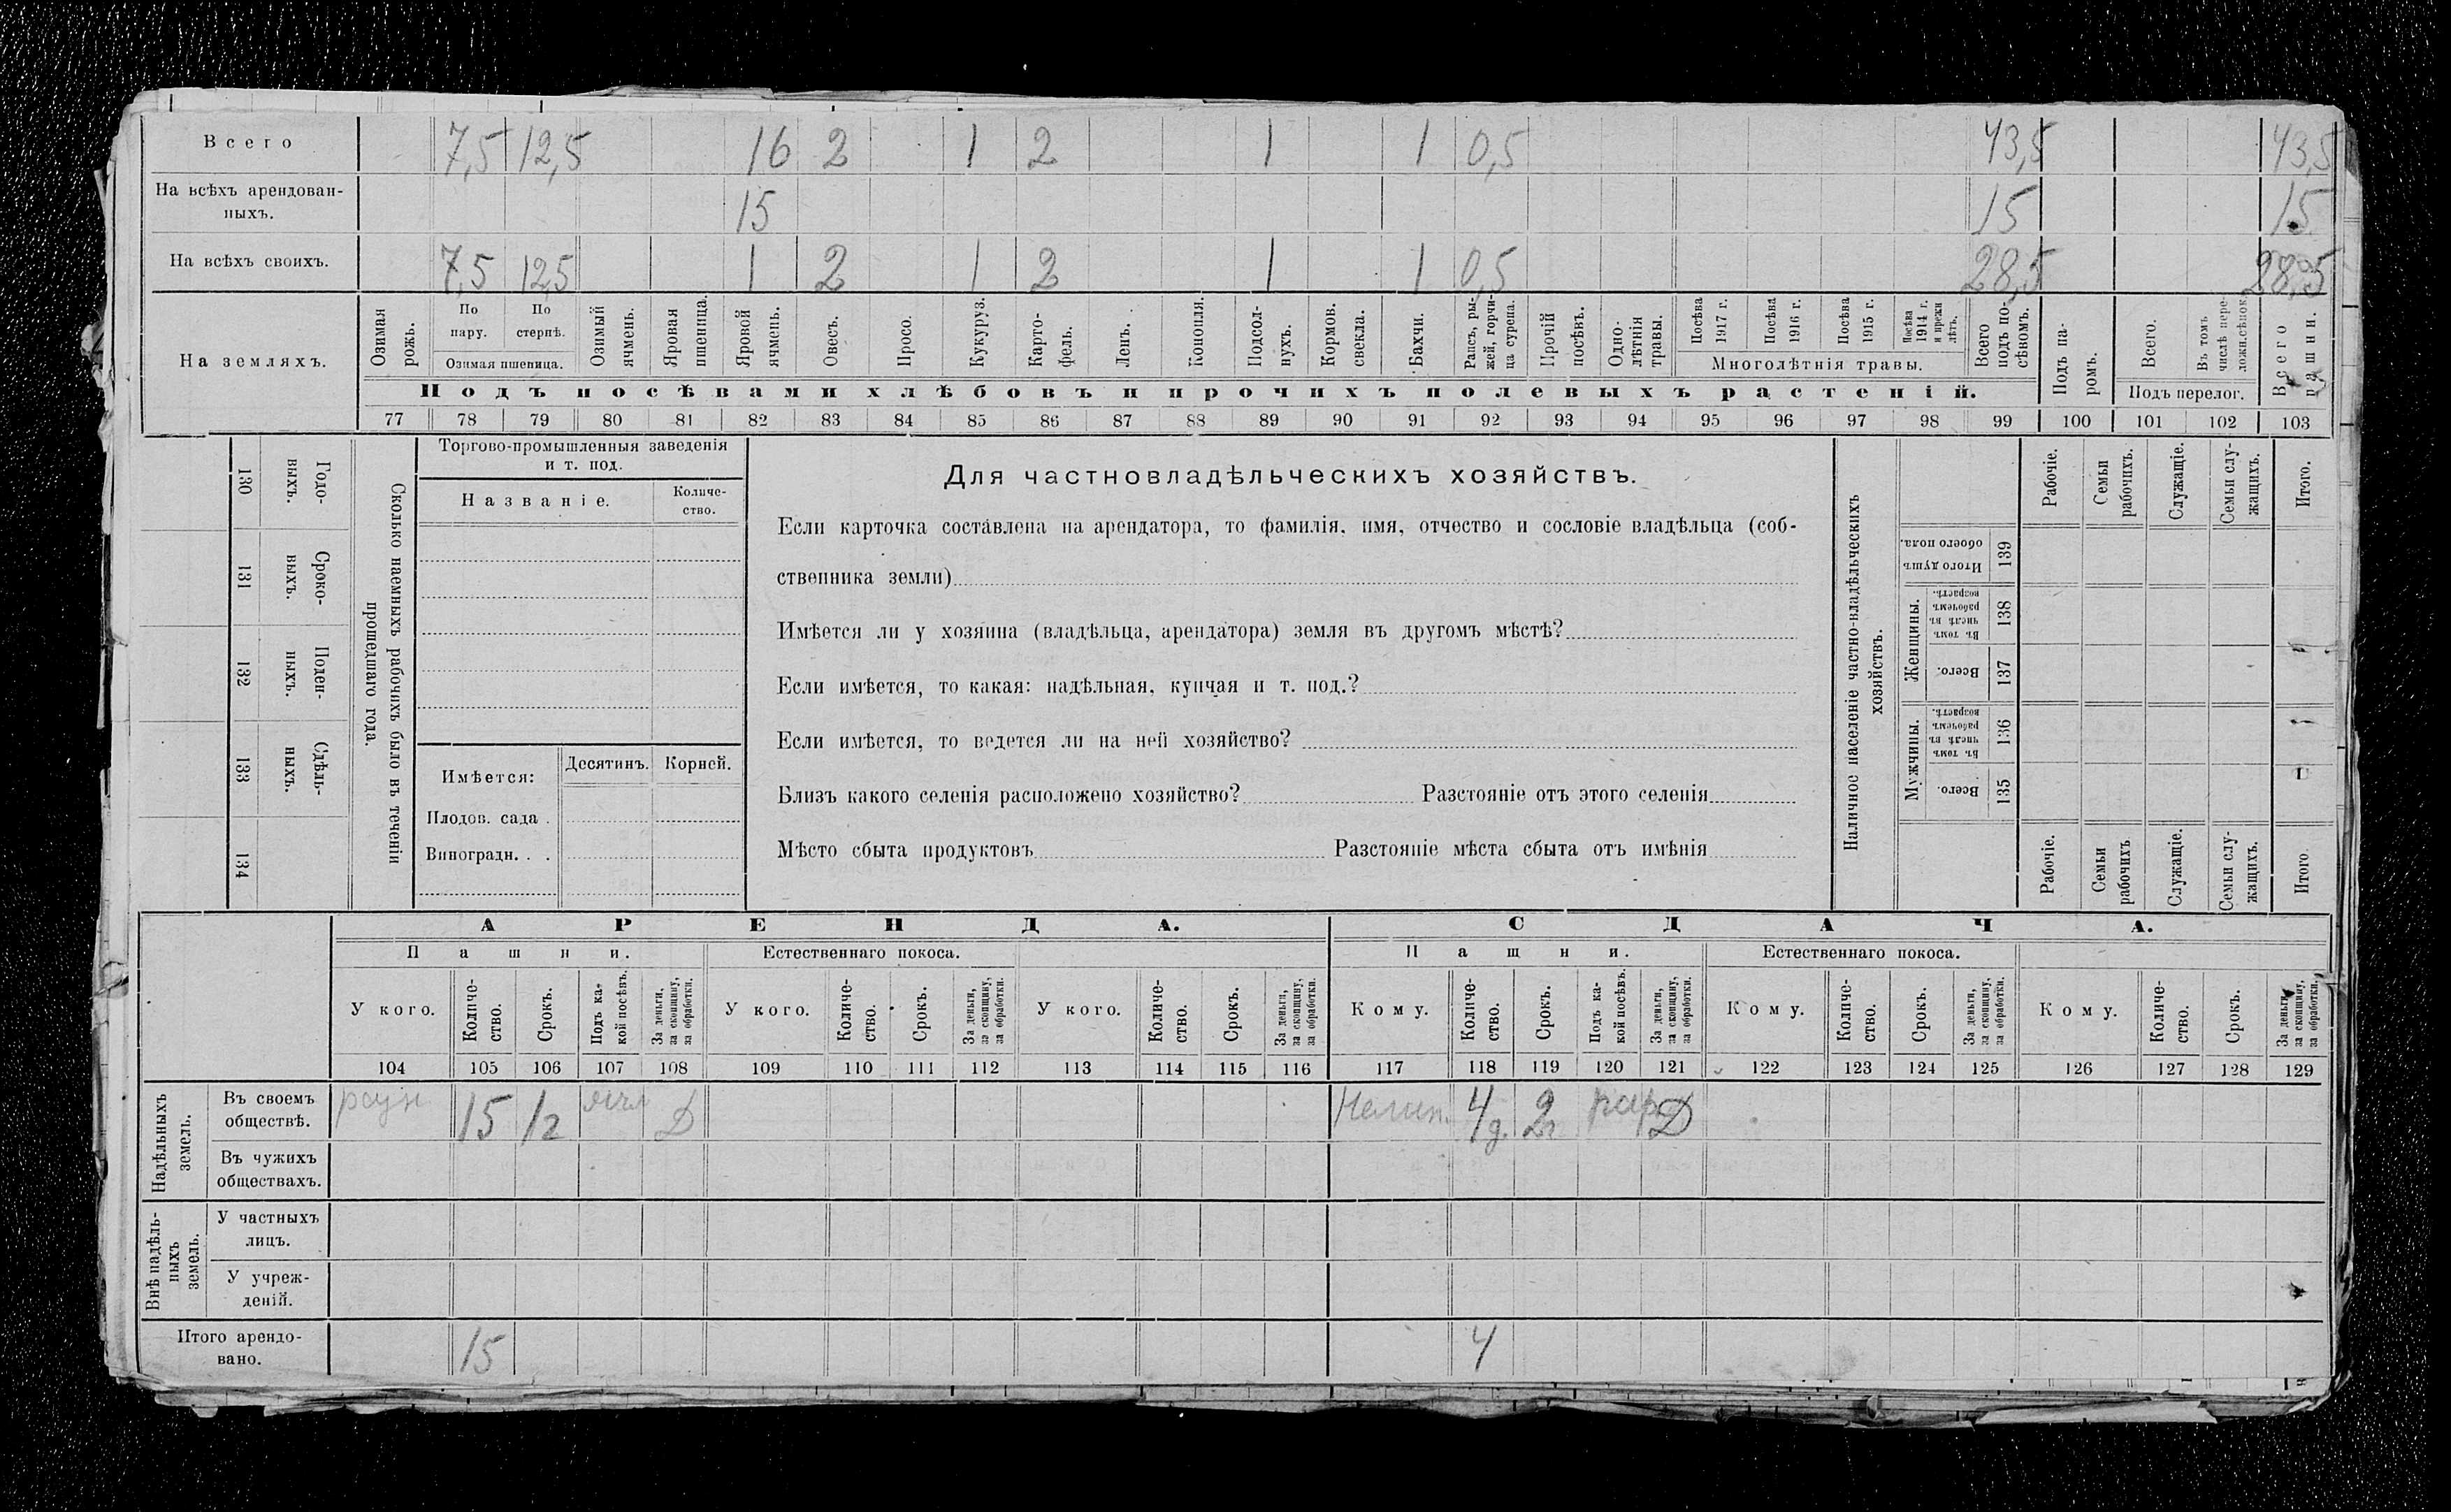 Всего 7,5 12,5 16 2 1 2 1 1 0,5 43,5 43,5
На всѣхъ арендован-
ныхъ. 15 15 15
На всѣхъ своихъ. 7,5 12,5 1 2 1 2 1 1 0,5 28,5 28,5
На земляхъ.
Озимая рожь.
По пару.
По стернѣ.
Озимая пшеница.
Озимый ячмень.
Яровая пшеница.
Яровой ячмень.
Овесъ.
Просо.
Кукуруз.
Карто-
фель.
Ленъ.
Конопля.
Подсол-
нухъ.
Кормов.
свекла.
Бахчи.
Рапсъ, ры-
жей, горчи-
ца сурепа.
Прочій
посѣвъ.
Одно-
лѣтнія
травы.
Посѣва
1917 г.
Посѣва
1916 г.
Посѣва
1915 г.
Посѣва
1914 г.
и прежн
лѣтъ.
Многолѣтнія травы.
Всего
подъ по-
сѣвомъ.
Подъ па-
ромъ.
Всего.
Въ томъ
числѣ пере-
ложн.сѣнокос.
Подъ перелог.
Всего
пашни.
Подъ посѣвами хлѣбовъ и прочихъ полевыхъ растеній.
77 78 79 80 81 82 83 84 85 86 87 88 89 90 91 92 93 94 95 96 97 98 99 100 101 102 103
130 Годо-
выхъ.
131 Сроко-
ныхъ.
132 Поден-
ныхъ.
133 Сдѣль-
ныхъ.
134
Сколько наемныхъ рабочихъ было въ теченіи
прошедшаго года.
Торгово-промышленныя заведенія
и т. под.
Названіе.
Количе-
ство.
Имѣется: Десятинъ. Корней.
Плодов. сада .
Виноградн. . .
Для частновладѣльческихъ хозяйствъ.
Если карточка составлена на арендатора, то фамилія, имя, отчество и сословіе владѣльца (соб-
ственника земли)
Имѣется ли у хозяина (владѣльца, арендатора) земля въ другомъ мѣстѣ?
Если имѣется, то какая: надѣльная, купчая и т. под.?
Если имѣется, то ведется ли на ней хозяйство?
Близъ какого селенія расположено хозяйство? Разстояніе отъ этого селенія
Мѣсто сбыта продуктовъ Разстояніе мѣста сбыта отъ имѣнія
Наличное населеніе частно-владѣльческихъ
хозяйствъ.
Рабочіе.
Семьи
рабочихъ.
Служащіе.
Семьи слу-
жащихъ.
Итого.
Итого душъ
обоего пола.
139
Женщины.
Въ томъ
числѣ въ
рабочемъ
возрастѣ.
138
Всего.
137
Мужчины.
Въ томъ
числѣ въ
рабочемъ
возрастѣ.
136
Всего.
135
Рабочіе.
Семьи
рабочихъ
Служащіе.
Семьи слу-
жащихъ.
Итого
АРЕНДА. СДАЧА.
Пашни. Естественнаго покоса. Пашни. Естественнаго покоса.
У кого.
Количе-
ство.
Срокъ.
Подъ ка-
кой посѣвъ.
За деньги,
за скопщину,
за обработки.
У кого.
Количе-
ство.
Срокъ.
За деньги,
за скопщину,
за обработки.
У кого.
Количе-
ство.
Срокъ.
За деньги,
за скопщину,
за обработки.
Кому.
Количе-
ство.
Срокъ.
Подъ ка-
кой посѣвъ.
За деньги,
за скопщину,
за обработки.
Кому.
Количе-
ство.
Срокъ.
За деньги,
за скопщину,
за обработки.
Кому.
Количе-
ство.
Срокъ.
За деньги,
за скопщину,
за обработки.
104 105 106 107 108 109 110 111 112 113 114 115 116 117 118 119 120 121 122 123 124 125 126 127 128 129
Надѣльныхъ
земель.
Въ своемъ
обществѣ. 15 1г Д 4д. 2г Д
Въ чужихъ
обществахъ.
Внѣ надѣль-
ныхъ
земель.
У частныхъ
лицъ.
У учреж-
деній.
Итого арендо-
вано. 15 4